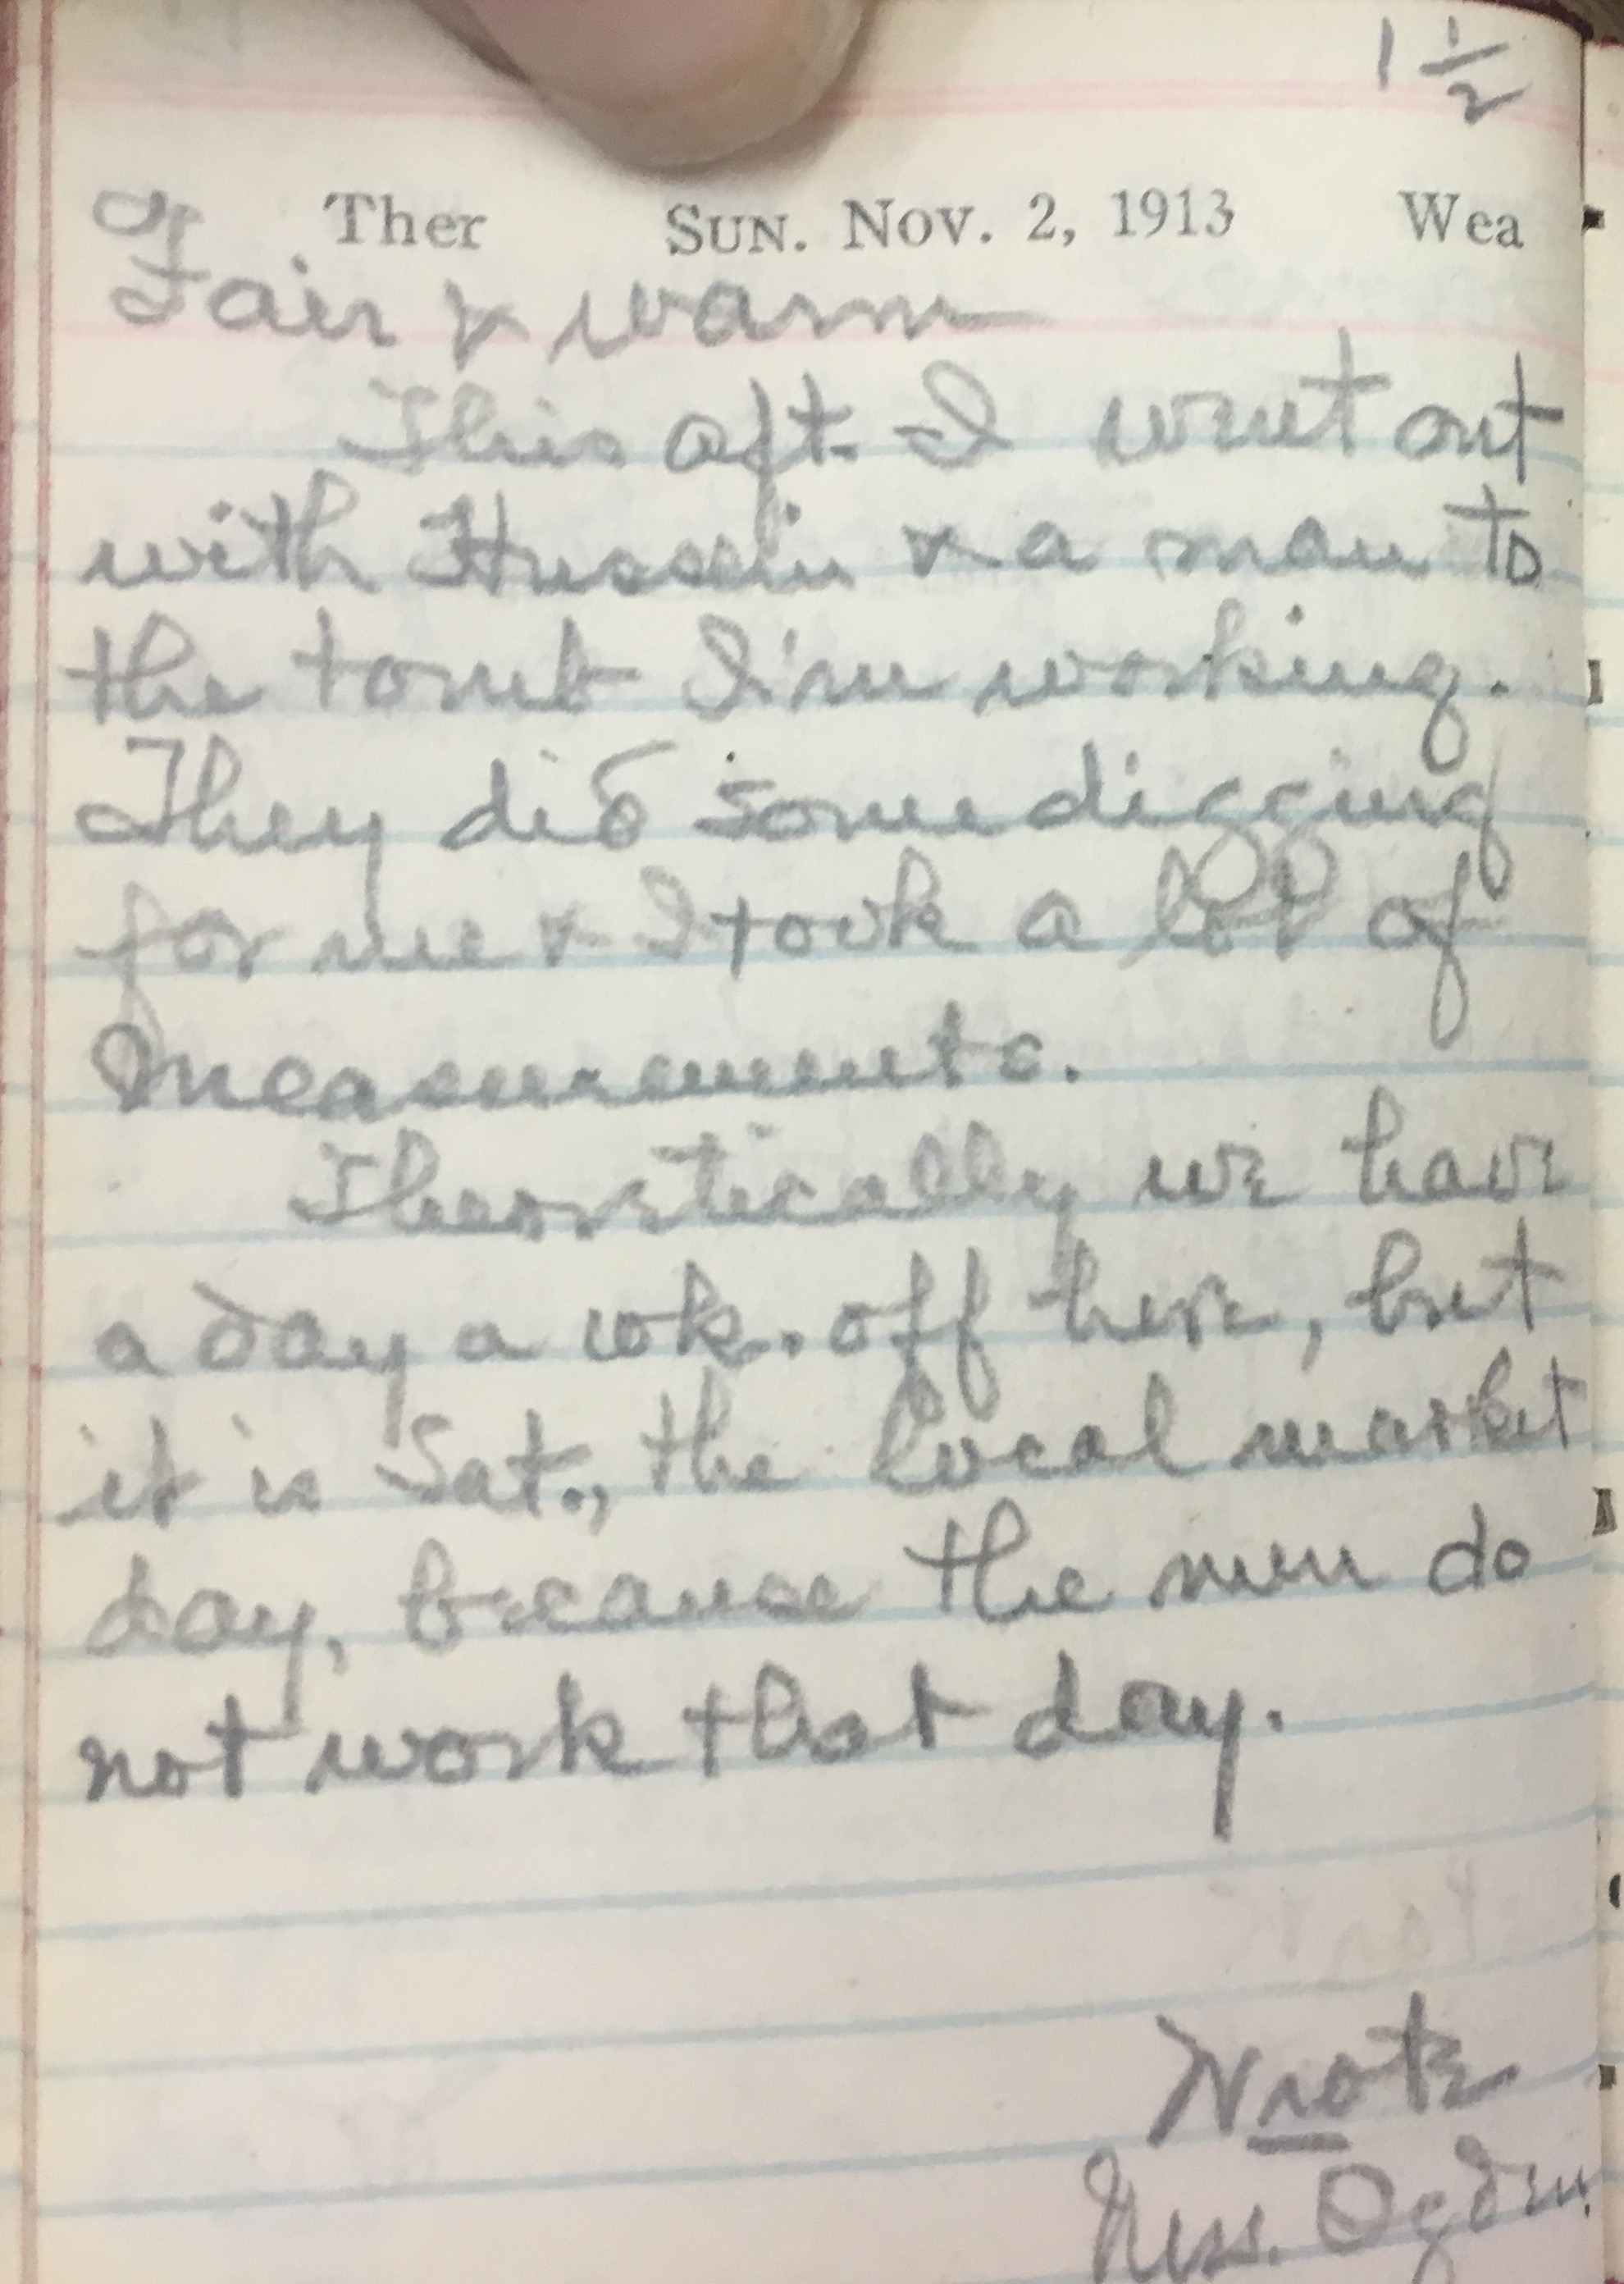 1 1/2
Ther Sun. Nov. 2, 1913 Wea
Fair & warm
This aft. I went out
with Hussein & a man to
the tomb I'm working.
They did some digging
for me & I took a lot of
measurements.
Theoretically we have
a day a wk. off here, but
it is Sat., the local market
day, because the men do
not work that day.
Wrote
Miss. Ogden